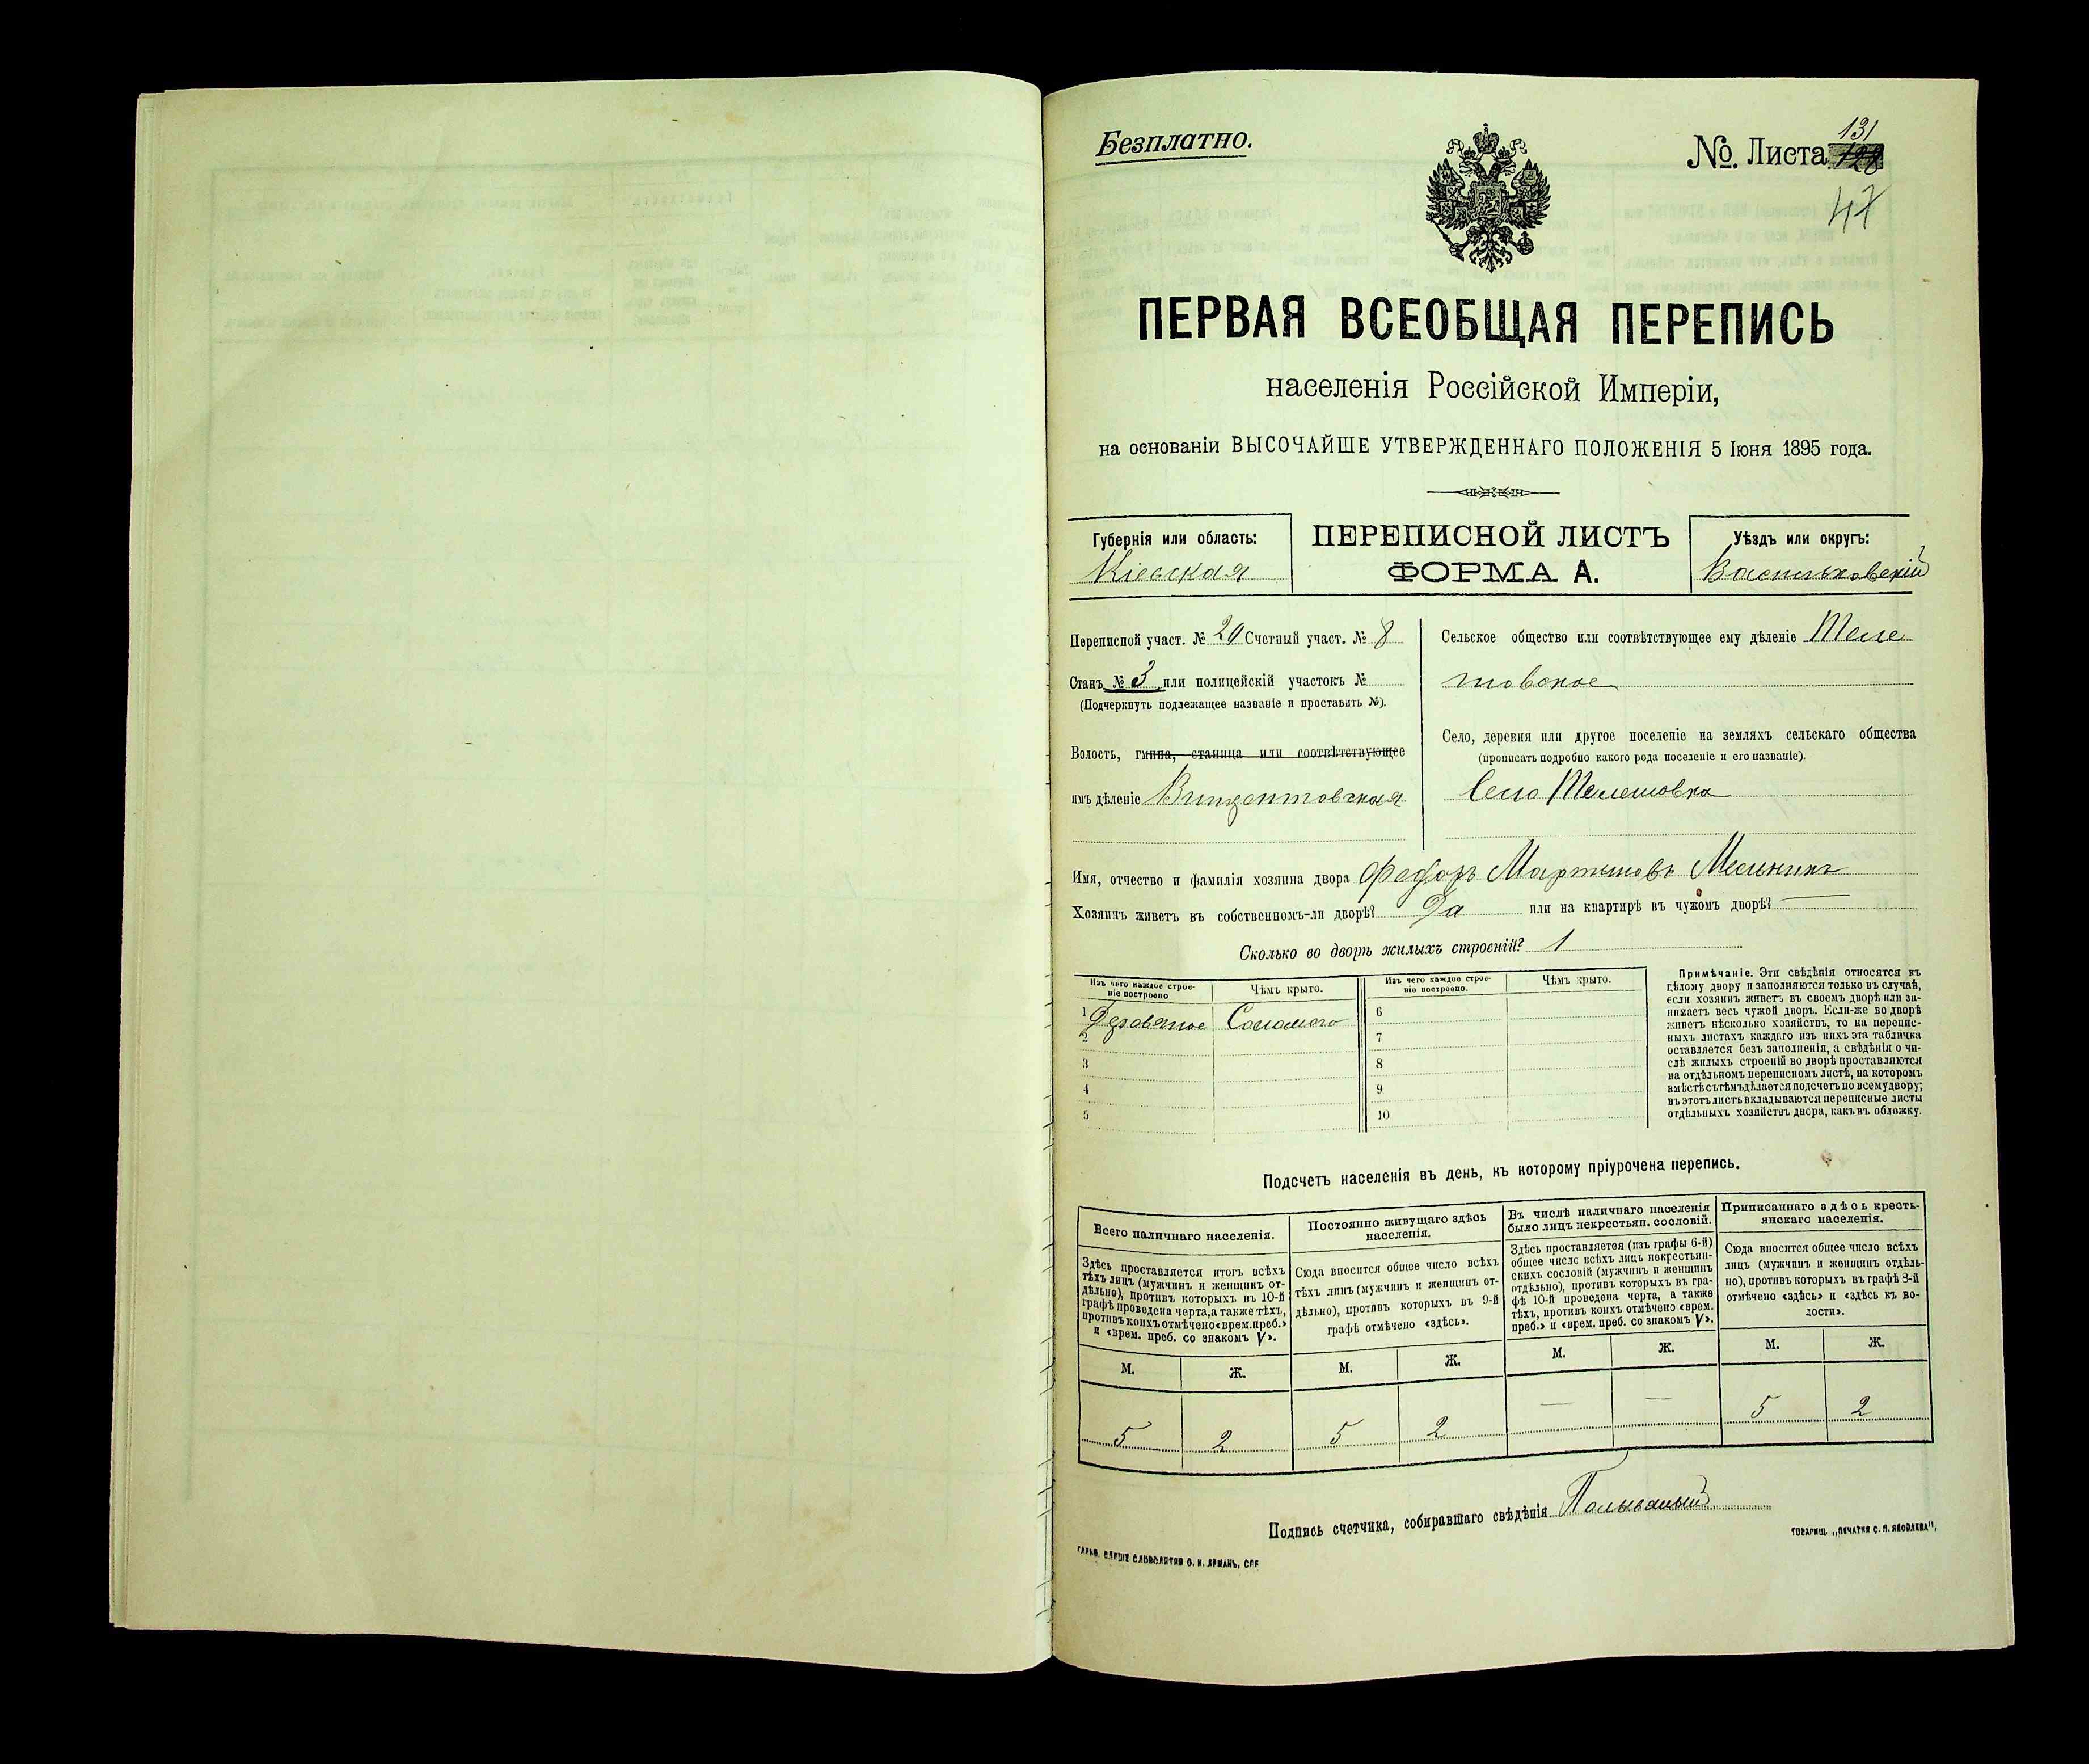 Безплатно.
№ Листа 131
128
47
ПЕРВАЯ ВСЕОБЩАЯ ПЕРЕПИСЬ
населенія Россійской Имперіи,
на основаніи ВЫСОЧАЙШЕ УТВЕРЖДЕННАГО ПОЛОЖЕНІЯ 5 Іюня 1895 года.
Губернія или область:
Кіевская
ПЕРЕПИСНОЙ ЛИСТЪ
ФОРМА А.
Уѣздъ или округъ:
Васильковскій
Переписной участ. № 20 Счетный участ. № 8
Станъ № 3 или полицейскій участокъ №
(Подчеркнуть подлежащее названіе и проставить №).
Волость, гмина, станица или соотвѣтствующее
имъ дѣленіе Винцентовская
Сельское общество или соотвѣтствующее ему дѣленіе Теле
шовское
Село, деревня или другое поселеніе на земляхъ сельскаго общества
(прописать подробно какого рода поселеніе и его названіе).
Село Телешовка
Имя, отчество и фамилія хозяина двора Федоръ Мартиновъ
Хозяинъ живетъ въ собственномъ-ли дворѣ? Да или на квартирѣ въ чужомъ дворѣ? —
Сколько во дворѣ жилыхъ строеній? 1
Изъ чего каждое строе-
ніе построено
Чѣмъ крыто.
Изъ чего каждое строе-
ніе построено.
Чѣмъ крыто.
1 Деревяное Соломою
2
3
4
5
6
7
8
9
10
Примѣчаніе. Эти свѣдѣнія относятся къ
цѣлому двору и заполняются только въ случаѣ,
если хозяинъ живетъ въ своемъ дворѣ или за-
нимаетъ весь чужой дворъ. Если-же во дворѣ
живетъ нѣсколько хозяйствъ, то на перепис-
ныхъ листахъ каждаго изъ нихъ эта табличка
оставляется безъ заполненія, а свѣдѣнія о чи-
слѣ жилыхъ строеній во дворѣ проставляются
на отдѣльномъ переписномъ листѣ, на которомъ
вмѣстѣ съ тѣмъ дѣлается подсчетъ по всему двору;
въ этотъ листъ вкладываются переписные листы
отдѣльныхъ хозяйствъ двора, какъ въ обложку.
Подсчетъ населенія въ день, къ которому пріурочена перепись.
Всего наличнаго населенія.
Здѣсь проставляется итогъ всѣхъ
тѣхъ лицъ (мужчинъ и женщинъ от-
дѣльно), противъ которыхъ въ 10-й
графѣ проведена черта, а также тѣхъ,
противъ коихъ отмѣчено «врем. преб.»
и «врем. преб. со знакомъ V».
М. Ж.
5 2
Постоянно живущаго здѣсь
населенія.
Сюда вносится общее число всѣхъ
тѣхъ лицъ (мужчинъ и женщинъ от-
дѣльно), противъ которыхъ въ 9-й
графѣ отмѣчено «здѣсь».
М. Ж.
5 2
Въ числѣ наличнаго населенія
было лицъ некрестьян. сословій.
Здѣсь проставляется (изъ графы 6-й)
общее число всѣхъ лицъ некрестьян-
скихъ сословій (мужчинъ и женщинъ
отдѣльно), противъ которыхъ въ гра-
фѣ 10-й проведена черта, а также
тѣхъ, противъ коихъ отмѣчено «врем.
преб.» и «врем. преб. со знакомъ V».
М. Ж.
— —
Приписаннаго здѣсь кресть-
янскаго населенія.
Сюда вносится общее число всѣхъ
лицъ (мужчинъ и женщинъ отдѣль-
но), противъ которыхъ въ графѣ 8-й
отмѣчено «здѣсь» и «здѣсь къ во-
лости».
М. Ж.
5 2
Подпись счетчика, собиравшаго свѣдѣнія
ТОВАРИЩ. „ПЕЧАТНЯ С. П. ЯКОВЛЕВА“.
СЛОВОЛИТНЯ О. И. ЛЕМАНЪ, СПБ